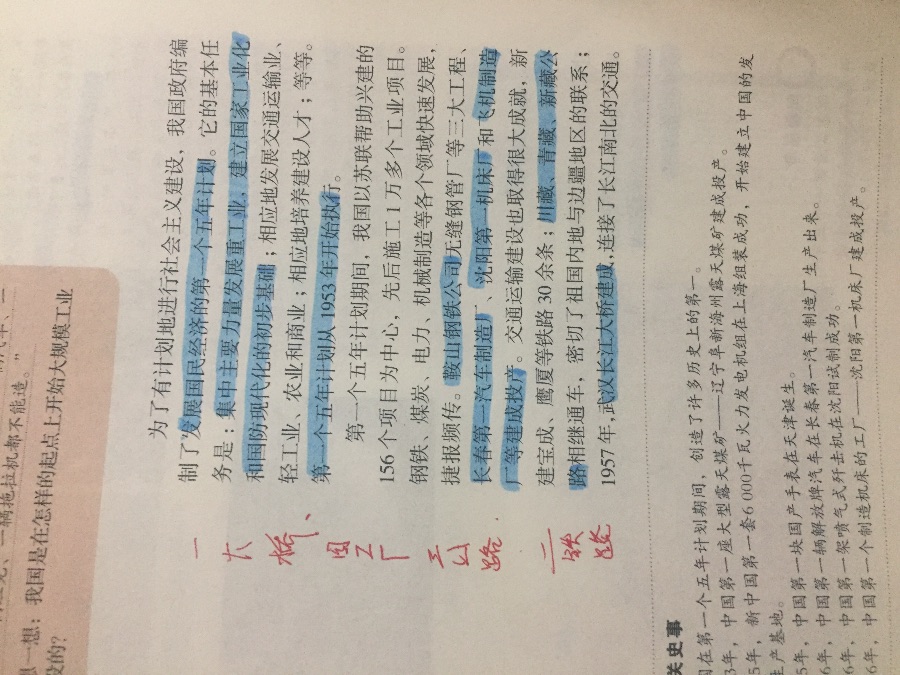 一辆拖拉机都不能造。”
想一想：我国是在怎样的起点上开始大规模工业
设的？
为了有计划地进行社会主义建设，我国政府编
制了发展国民经济的第一个五年计划。它的基本任
务是：集中主要力量发展重工业，建立国家工业化
和国防现代化的初步基础；相应地发展交通运输业、
轻工业、农业和商业；相应地培养建设人才；等等。
第一个五年计划从1953年开始执行。
第一个五年计划期间，我国以苏联帮助兴建的
156个项目为中心，先后施工1万多个工业项目。
钢铁、煤炭、电力、机械制造等各个领域快速发展，
捷报频传。鞍山钢铁公司无缝钢管厂等三大工程、
长春第一汽车制造厂、沈阳第一机床厂和飞机制造
厂等建成投产。交通运输建设也取得很大成就，新
建宝成、鹰厦等铁路30余条；川藏、青藏、新藏公
路相继通车，密切了祖国内地与边疆地区的联系；
1957年，武汉长江大桥建成，连接了长江南北的交通。
一大桥、四工厂 三公路 二铁路
关史事
国在第一个五年计划期间，创造了许多历史上的第一。
3年，中国第一座大型露天煤矿——辽宁阜新海州露天煤矿建成投产。
5年，新中国第一套6000千瓦火力发电机组在上海组装成功，开始建立中国的发
生产基地。
5年，中国第一块国产手表在天津诞生。
6年，中国第一辆解放牌汽车在长春第一汽车制造厂生产出来。
6年，中国第一架喷气式歼击机在沈阳试制成功。
6年，中国第一个制造机床的工厂——沈阳第一机床厂建成投产。